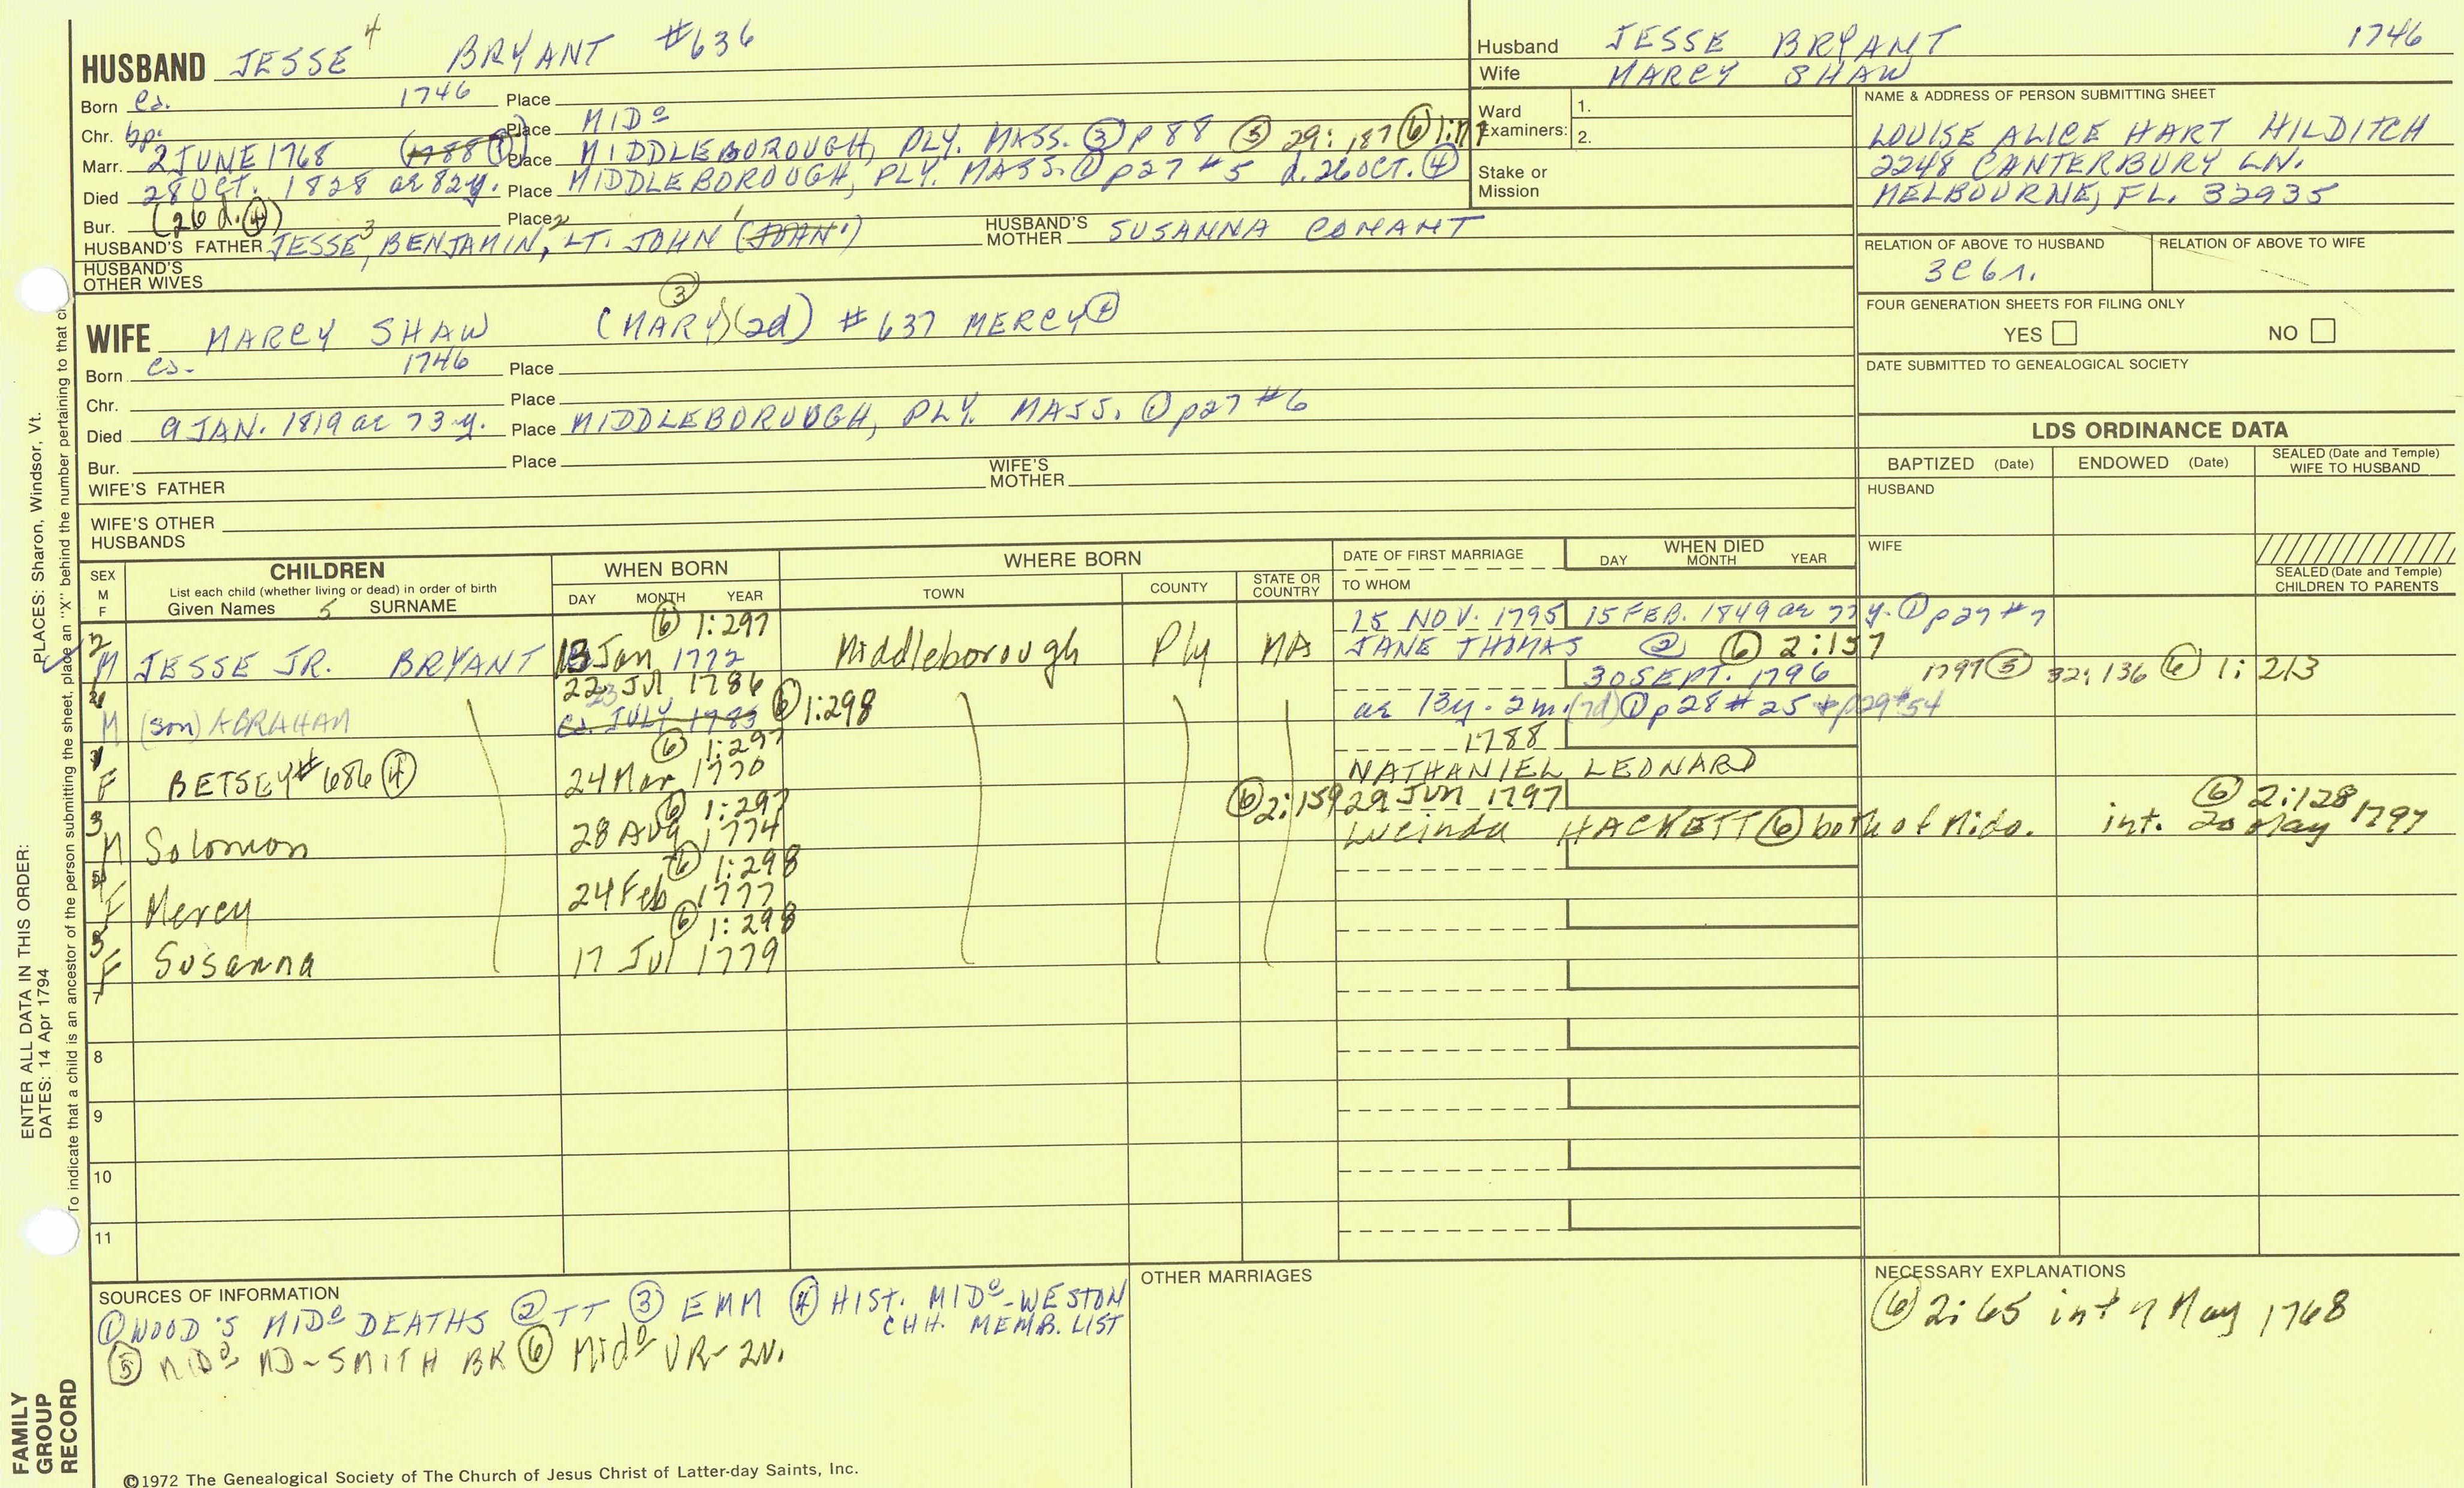 HUSBAND JESSE 4 BRYANT #636
Born ca. 1746 Place
Chr. bp. Place MIDo
Marr. 2 JUNE 1768 (1788 ①) Place MIDDLEBOROUGH, PLY. MASS. ③ p 88 ⑤ 29:187 ⑥
Died 28 OCT. 1828 ae 82y. Place MIDDLEBOROUGH, PLY. MASS. ① p27 #5 d. 26 OCT. ④
Bur. (26 d. ④) Place
HUSBAND'S FATHER JESSE 3, BENJAMIN, 2 LT. JOHN 1 (JOHN1) HUSBAND'S MOTHER SUSANNA CONANT
HUSBAND'S OTHER WIVES
Husband JESSE BRYANT 1746
Wife MARCY SHAW
Ward Examiners: 1.
2.
Stake or Mission
NAME & ADDRESS OF PERSON SUBMITTING SHEET
LOUISE ALICE HART HILDITCH
2248 CANTERBURY LN.
MELBOURNE, FL. 32935
RELATION OF ABOVE TO HUSBAND RELATION OF ABOVE TO WIFE
3C6r.
FOUR GENERATION SHEETS FOR FILING ONLY
YES NO
DATE SUBMITTED TO GENEALOGICAL SOCIETY
③
WIFE MARCY SHAW (MARY) (2d) #637 MERCY
Born ca. 1746 Place
Chr. Place
Died 9 JAN. 1819 ae 73 y. Place MIDDLEBOROUGH, PLY. MASS. ① p27 #6
Bur. Place
WIFE'S FATHER WIFE'S MOTHER
WIFE'S OTHER HUSBANDS
LDS ORDINANCE DATA
BAPTIZED (Date) ENDOWED (Date) SEALED (Date and Temple) WIFE TO HUSBAND
HUSBAND
WIFE
SEALED (Date and Temple) CHILDREN TO PARENTS
SEX M F
CHILDREN
List each child (whether living or dead) in order of birth
Given Names 5 SURNAME
WHEN BORN
DAY MONTH YEAR
WHERE BORN
TOWN COUNTY STATE OR COUNTRY
DATE OF FIRST MARRIAGE
TO WHOM
WHEN DIED
DAY MONTH YEAR
⑥ 1:297 15 NOV. 1795 15 FEB. 1849 ae 77 y. ① p27 #7
2 M JESSE JR. BRYANT 13 Jan 1772 Middleborough Ply MA JANE THOMAS ② ⑥ 2:157
22 23 Jul 1786 30 SEPT. 1796 1797 ⑤ 32:136 ⑥ 1:213
M (son) ABRAHAM ca. JULY 1783 ⑥ 1:298 ae 13y. 2m. (7d) ① p28 #25 + p29 #54
⑥ 1:297 1788
1 F BETSEY #686 ④ 24 Mar 1770 NATHANIEL LEONARD
⑥ 1:297 ⑥ 2:159 29 Jun 1797 ⑥ 2:128
3 M Solomon 28 Aug 1774 Lucinda HACKETT ⑥ both of Mido. int. 20 May 1797
⑥ 1:298
F Mercy 24 Feb 1777
⑥ 1:298
5 F Susanna 17 Jul 1779
7
8
9
10
11
SOURCES OF INFORMATION
① WOOD'S MIDo DEATHS ② TT ③ EMM ④ HIST. MIDo-WESTON
CHH. MEMB. LIST
⑤ MIDo MD-SMITH BK ⑥ Mido VR-2V.
OTHER MARRIAGES
NECESSARY EXPLANATIONS
⑥ 2:65 int 7 May 1768
©1972 The Genealogical Society of The Church of Jesus Christ of Latter-day Saints, Inc.
FAMILY GROUP RECORD
ENTER ALL DATA IN THIS ORDER:
DATES: 14 Apr 1794
PLACES: Sharon, Windsor, Vt.
To indicate that a child is an ancestor of the person submitting the sheet, place an "X" behind the number pertaining to that